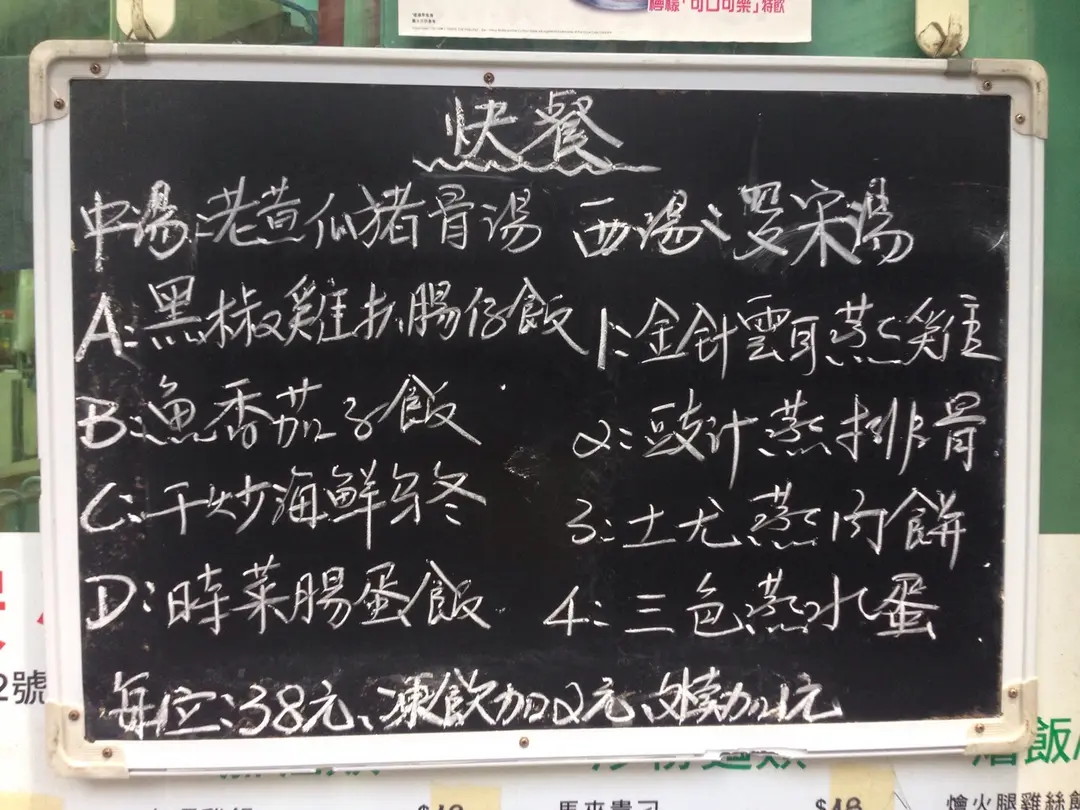 檸檬「可口可樂」特飲
快餐
中湯:老黄瓜猪骨湯 西湯:罗宋湯
A:黑椒雞扒腸仔飯 1:金針雲耳蒸雞
B:魚香茄子飯 2:豉汁蒸排骨
C:干炒海鮮乌冬 3:土尤蒸肉餅
D:時菜腸蛋飯 4:三色蒸水蛋
每位:38元、凍飲加2元、外賣加1元
2號
飯
馬來貴刁 $46
燴火腿雞絲